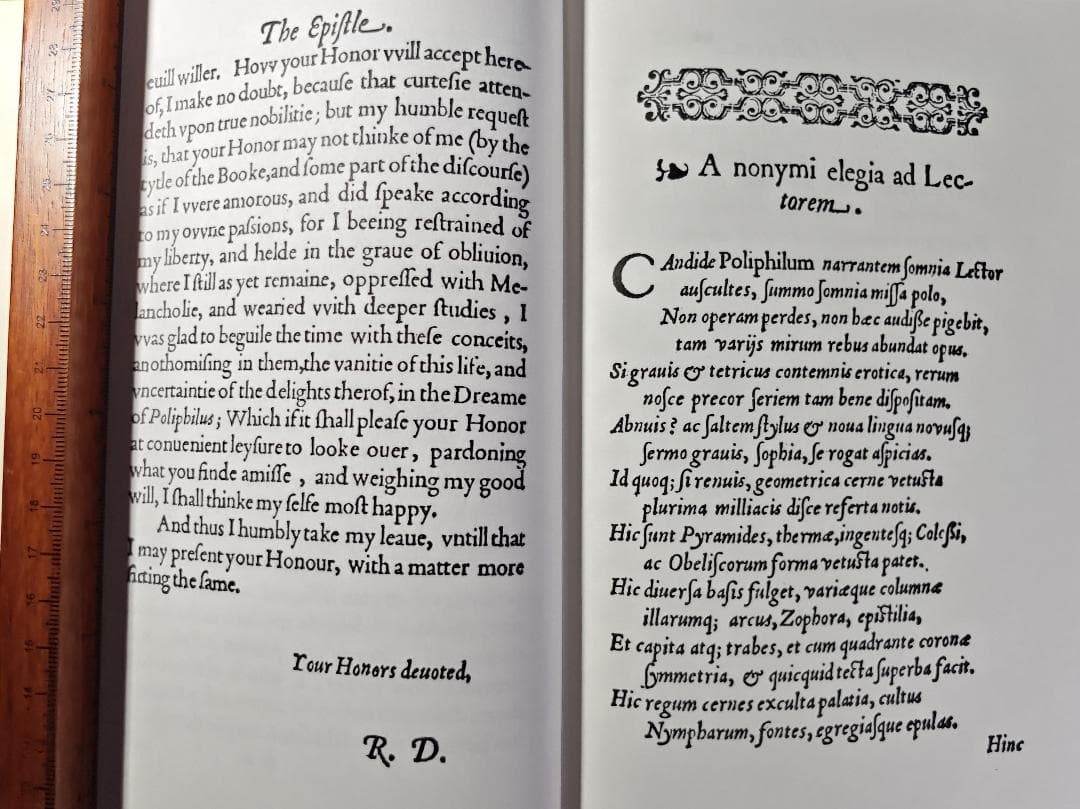 The Epiſtle.
euill willer. Hovv your Honor vvill accept here-
of, I make no doubt, becauſe that curteſie atten-
deth vpon true nobilitie; but my humble requeſt
is, that your Honor may not thinke of me (by the
tytle of the Booke, and ſome part of the diſcourſe)
as if I vvere amorous, and did ſpeake according
to my ovvne paſsions, for I beeing reſtrained of
my liberty, and helde in the graue of obliuion,
where I ſtill as yet remaine, oppreſſed with Me-
lancholie, and wearied vvith deeper ſtudies, I
vvas glad to beguile the time with theſe conceits,
anothomiſing in them, the vanitie of this life, and
vncertaintie of the delights therof, in the Dreame
of Poliphilus; Which if it ſhall pleaſe your Honor
at conuenient leyſure to looke ouer, pardoning
what you finde amiſſe, and weighing my good
will, I ſhall thinke my ſelfe moſt happy.
And thus I humbly take my leaue, vntill that
I may preſent your Honour, with a matter more
fitting the ſame.
Your Honors deuoted,
R. D.
A nonymi elegia ad Lec-
torem.
CAndide Poliphilum narrantem ſomnia Lector
auſcultes, ſummo ſomnia miſſa polo,
Non operam perdes, non hæc audiſſe pigebit,
tam varijs mirum rebus abundat opus.
Si grauis & tetricus contemnis erotica, rerum
noſce precor ſeriem tam bene diſpoſitam.
Abnuis? ac ſaltem ſtylus & noua lingua novuſq;
ſermo grauis, ſophia, ſe rogat aſpicias.
Id quoq; ſi renuis, geometrica cerne vetuſta
plurima milliacis diſce referta notis.
Hic ſunt Pyramides, thermæ, ingenteſq; Coleſſi,
ac Obeliſcorum forma vetuſta patet.
Hic diuerſa baſis fulget, variæque columnæ
illarumq; arcus, Zophora, epiſtilia,
Et capita atq; trabes, et cum quadrante coronæ
ſymmetria, & quicquid tecta ſuperba facit.
Hic regum cernes exculta palatia, cultus
Nympharum, fontes, egregiaſque epulas.
Hinc
29
28
27
26
25
24
23
22
21
20
19
18
17
16
15
14